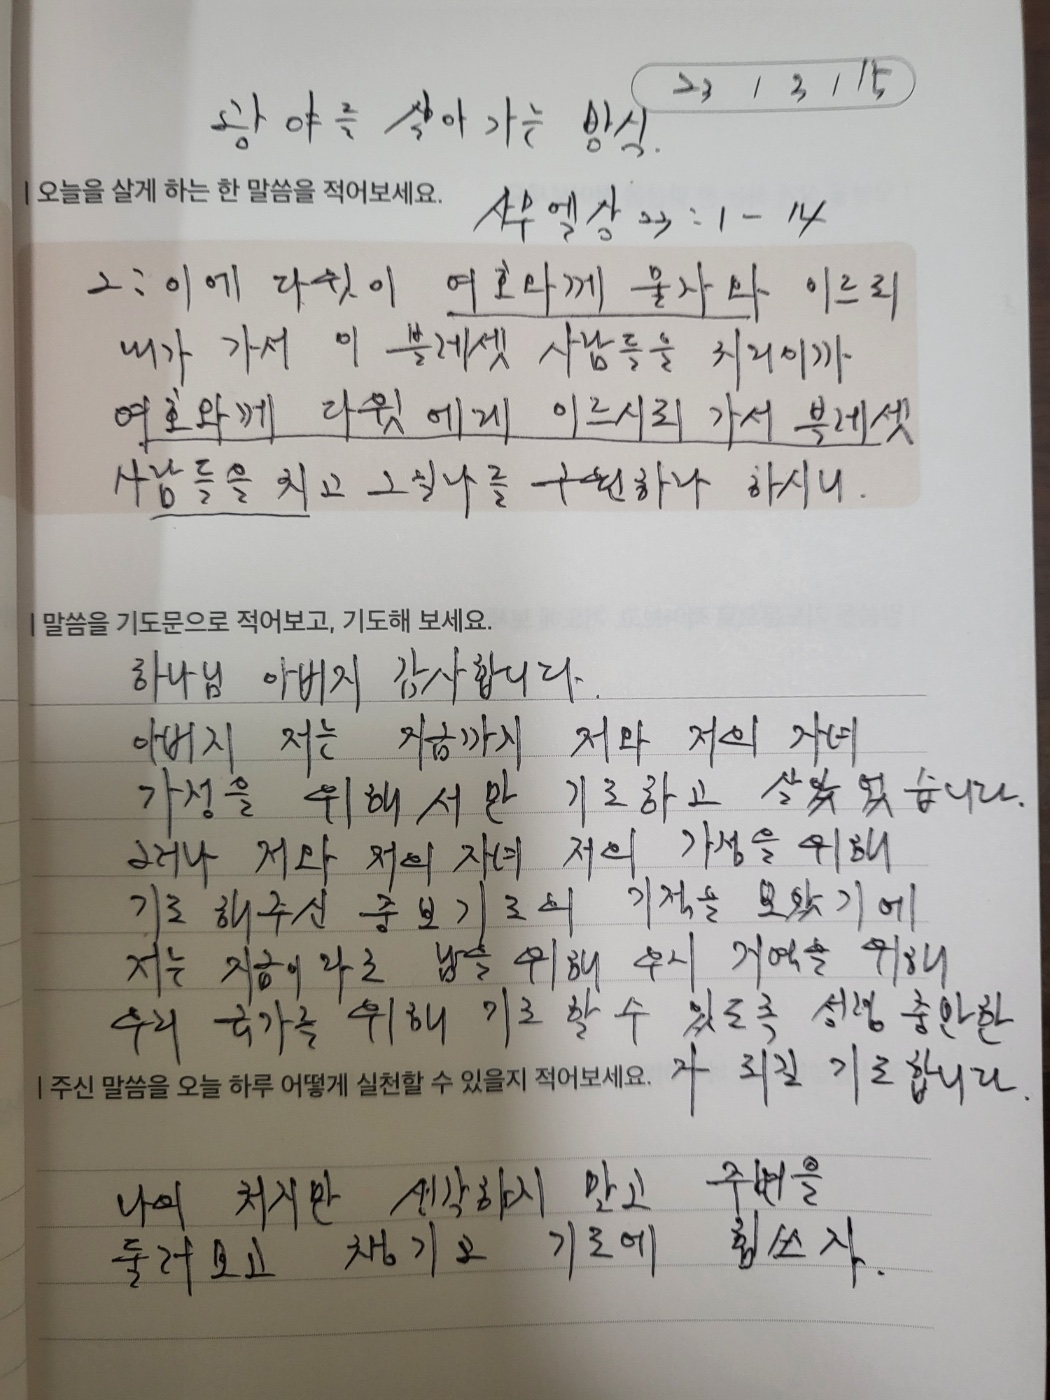 23 / 3 / 15
광야를 살아가는 방식.
| 오늘을 살게 하는 한 말씀을 적어보세요.
사무엘상 23:1-14
2: 이에 다윗이 여호와께 묻자와 이르되
내가 가서 이 블레셋 사람들을 치리이까
여호와께 다윗에게 이르시되 가서 블레셋
사람들을 치고 그일라를 구원하라 하시니.
| 말씀을 기도문으로 적어보고, 기도해 보세요.
하나님 아버지 감사합니다.
아버지 저는 지금까지 저와 저의 자녀
가정을 위해서만 기도하고 살았었습니다.
그러나 저와 저의 자녀 저의 가정을 위해
기도 해주신 중보기도의 기적을 보았기에
저는 지금이라도 남을 위해 우시 지역을 위해
우리 국가를 위해 기도 할 수 있도록 성령 충만한
자 되길 기도합니다.
| 주신 말씀을 오늘 하루 어떻게 실천할 수 있을지 적어보세요.
나의 처지만 생각하지 말고 주변을
둘러보고 챙기고 기도에 힘쓰자.